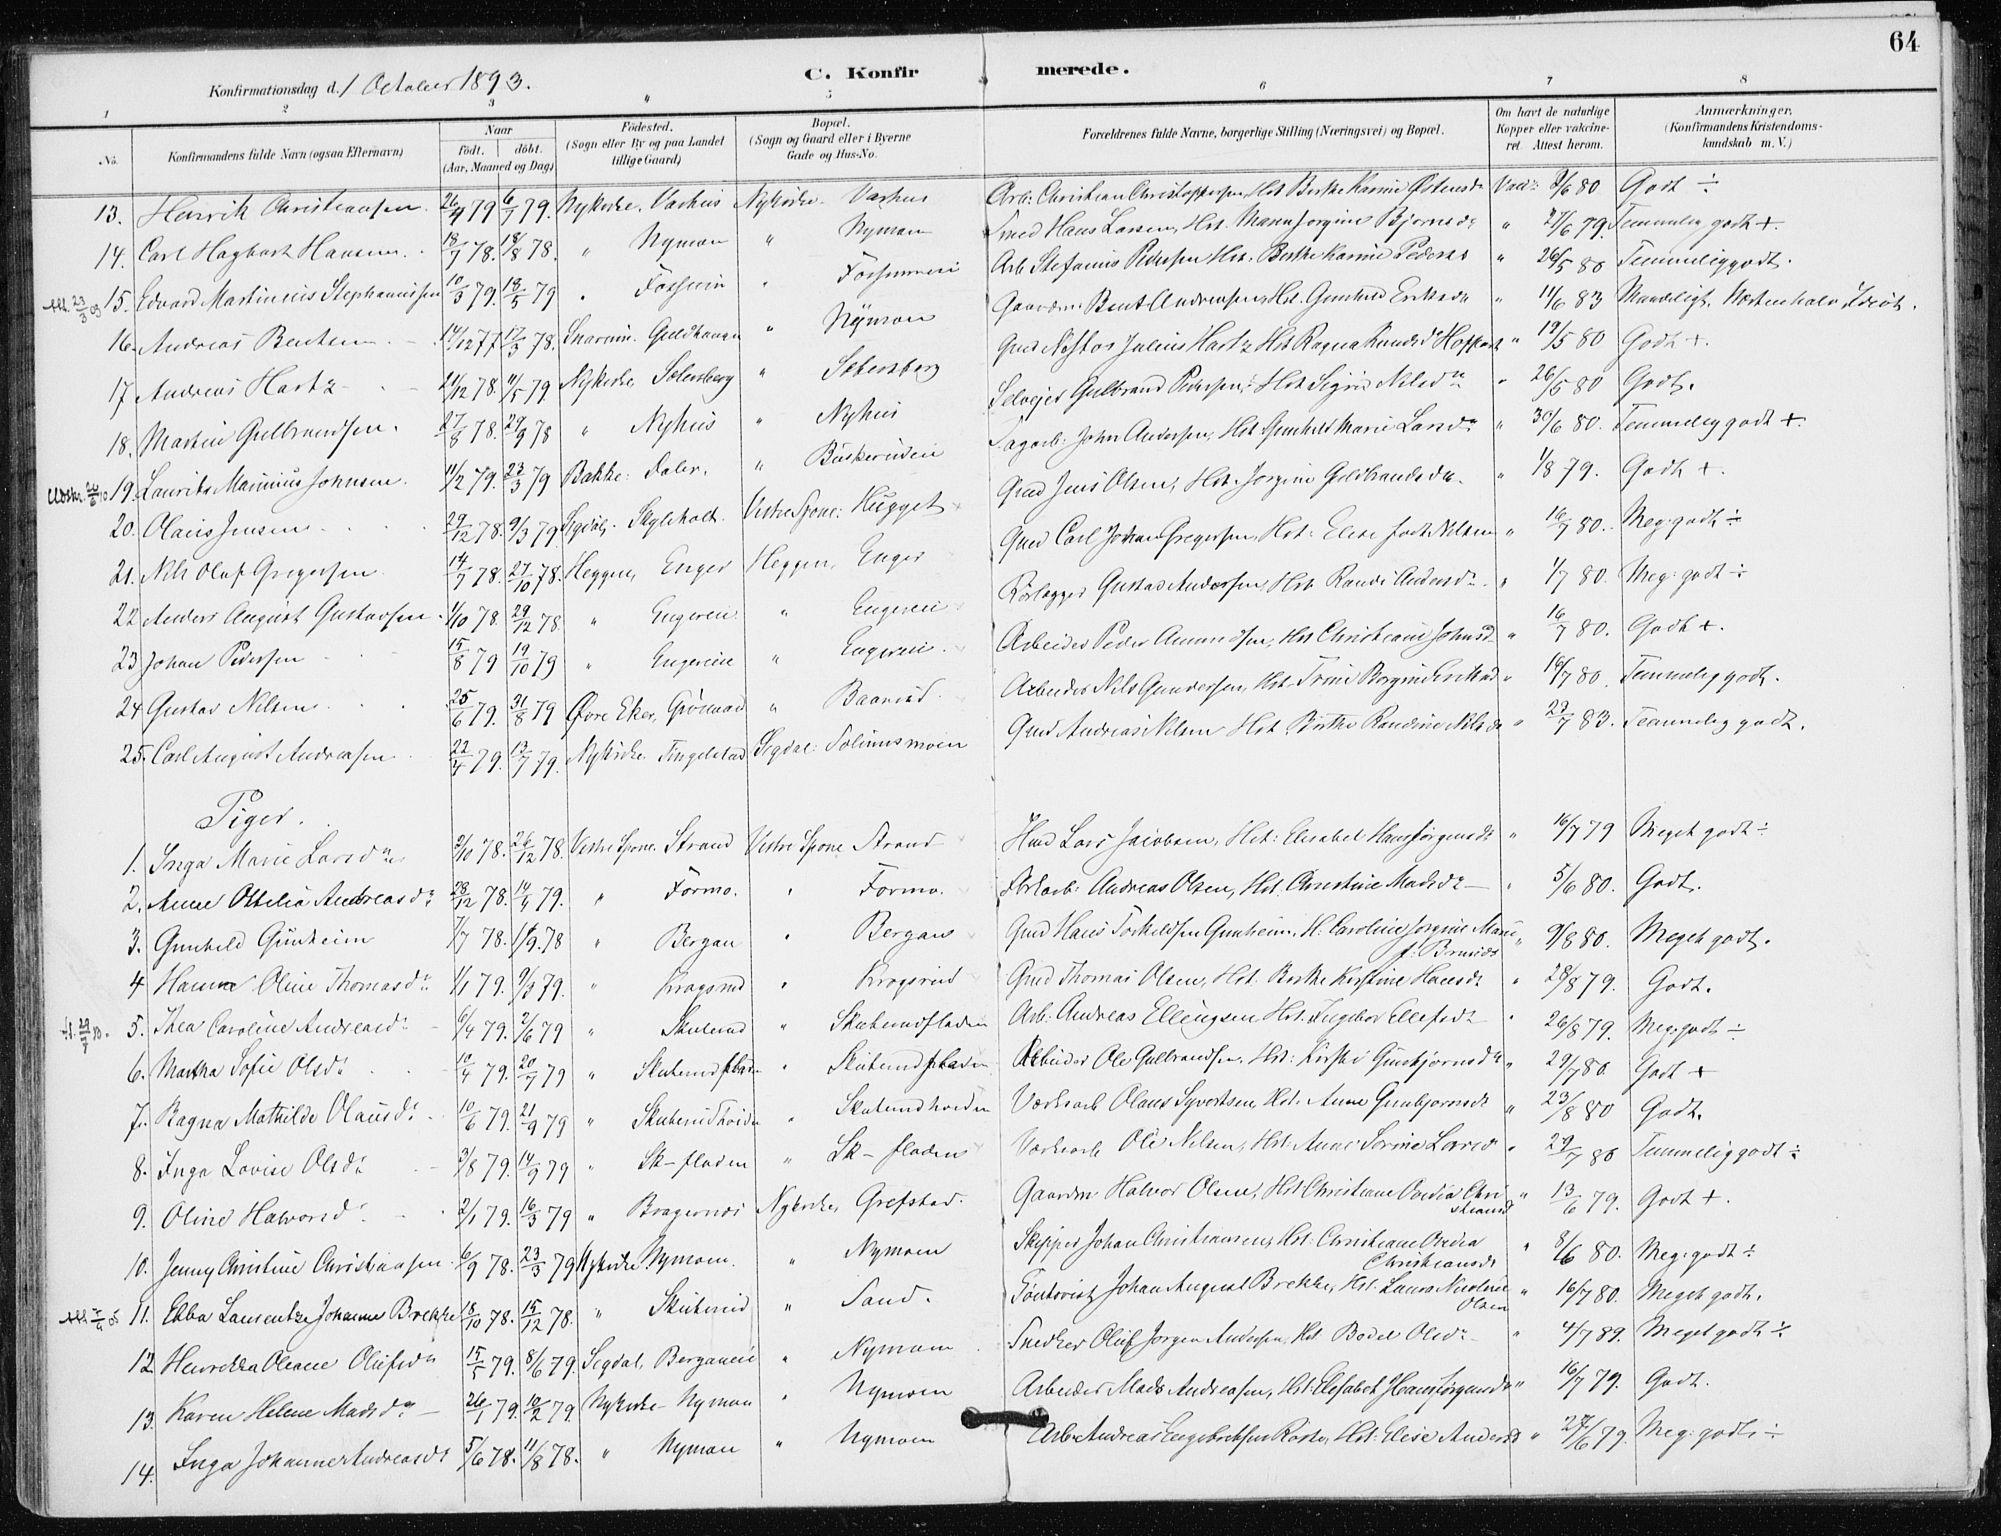 64
Konfirmationsdag d. 1 October 1893.
C. Konfirmerede.
1 2 3 " 5 6 7 8
No. Konfirmandens fulde Navn (ogsaa Efternavn)
Naar født. døbt. (Aar, Maaned og Dag)
Fødested. (Sogn eller By og paa Landet tillige Gaard)
Bopæl. (Sogn og Gaard eller i Byerne Gade og Hus-No.
Forældrenes fulde Navne, borgerlige Stilling (Næringsvei) og Bopæl.
Om havt de naturlige Kopper eller vakcineret. Attest herom.
Anmærkninger. (Konfirmandens Kristendomskundskab m. V.)
13. Henrik Christiansen. 26/4 79 6/7 79. Nykirke. Vashus Nykirke Vashus Arb: Christian Christophersen, Hst. Berthe Karine Østensdr Vac: 8/6 80 Godt ÷
14. Carl Hagbart Hansen. 18/7 78. 18/8 78. " Nymoen " Nymoen Smed Hans Larsen, Hst. Maren Jorgine Bjørnsdr " 27/6 79. Temmelig godt +.
15. Edvard Martinius Stephanussen 10/3 79. 18/5 79 " Fossumeie Arb. Stefanus Pedersen Hst. Berthe Karine Pedersdr " 26/5 80 Temmeliggodt.
16. Andreas Bentsen 14/12 77 17/3 78. " Nymoen Gaardm: Bent Andreasen, Hst. Gunhild Eriksdr " 11/6 83 Maadeligt. Næstenhalv Idiot.
17 Andreas Hartz 21/12 78. 11/5 79 Nykirke " Julius Hartz Hst. Ragna " 19/5 80 Godt +.
18. Martin Gulbrandsen. 27/8 78. 29/9 78 " Nyhus " Nyhus Selveier Gulbrand Pedersen, Hst. Sigrid Nilsdr " 26/5 80 Godt.
19. Laurits Marinius Johnsen. 11/2 79. 23/3 79 Bakke: " Buskerudeie Sagarb. John Andersen, Hst. Gunhild Marie Larsdr " 30/6 80. Temmelig godt +.
20. Olaus Jensen 29/12 78. 9/3 79 Sigdal. Vestre Spone: Hugget Gmd Jens Olsen, Hst. Jorgine Guldbrandsdr. " 1/8 79. Godt +.
21. Nils Oluf Gregersen 14/7 78. 27/10 78. Heggen, Enger Heggen, Enger Gmd Carl Johan Gregersen, Hst: Elise født Nilsen " 16/7 80. Meg: godt ÷
22 Anders August Gustavsen. 1/10 78. 29/12 78 " Engereie " Engereie Gustav Andersen, Hst. Randi Andersdr. " 1/7 80. Meg: godt ÷
23 Johan Pedersen 15/8 79 19/10 79 " Engereie " Engereie. Arbeider Peder Amundsen, Hst. Christiane Johnsdr " 16/7 80. Godt +.
24 Gustav Nilsen 25/6 79. 31/8 79 Øvre Eker, " Baanrud. Arbeider Nils Gundersen, Hst. " 16/7 80. Temmelig godt.
25. Carl August Andreasen 22/4 79. 13/7 79. Nykirke Tingelstad Sigdal: Solumsmoen Gmd Andreas Nilsen Hst. Berthe Randine Nilsdr " 29/7 83. Temmelig godt.
Piger.
1. Inga Marie Larsdr 2/10 78. 26/12 78. Vestre Spone. Strand Vestre Spone Strand Hmd Lars Jacobsen, Hst: Elisabet Hansjørgensdr " 16/7 79 Meget godt ÷
2. Anne Ottilia Andreasdr 28/12 78. 14/4 79. " Formo. " Formo. Andreas Olsen, Hst. Christine Madsdr " 5/6 80. Godt.
3. Gunhild Gunheim 7/7 78. 1/9 78 " Bergan " Bergan Gmd Hans Torkeldsen Gunheim, H. Caroline Jorgine Marie " 9/8 80. Meget godt.
4 Hanna Oline Thomasdr 1/1 79. 9/3 79. " Krogsrud " Krogsrud Gmd Thomas Olsen, Hst. Berthe Kirstine Hansdr " 28/8 79. Godt.
5. Thea Caroline Andreasdr 6/4 79. 2/6 79 " Skuterud " Skuterudfladen Arb. Andreas Ellingsen Hst. Ingebor Ellefsdr " 26/8 79. Meg: godt ÷
6. Martha Sofie Olsdr 10/4 79. 20/7 79 " Skuterudfladen " Skuterudfladen Arbeider Ole Gulbrandsen, Hst: Kirsti Gunbjørnsdr " 29/7 80. Godt +
7. Ragna Mathilde Olausdr 10/6 79. 21/9 79 " Skuterudhviden " Skuterudhviden Værksarb Olaus Syvertsen, Hst. Anne Gunbjørnsdr " 23/8 80 Godt.
8. Inga Lovise Olsdr 3/8 79. 14/9 79 " Sk-fladen " Sk-fladen Værksarb Ole Nilsen, Hst: Anne Sorine Larsdr " 29/7 80 Temmelig godt ÷
9. Oline Halvorsdr 2/1 79. 16/3 79 " Bragernes Nykirke, Grefstad. Gaardm Halvor Olsen, Hst. Christiane Ovedia Christiansd " 13/6 79. Godt +.
10. Jenny Christine Christiansen. 6/9 78. 23/3 79 Nykirke Nymoen. " Nymoen Skipper Johan Christiansen, Hst. Christiane Ovedia Christiansdr " 8/6 80. Meg: godt ÷
11. Ebba Laurentze Johanne Brekke 18/10 78. 15/12 78. " Skuterud " Sand. Johan August Brekke, Hst: Laura Nicoline Olsen " 16/7 80. Meget godt.
12 Henrikka Oleane Olufsdr 15/5 79. 8/6 79. Sigdal, Berganeie " Nymoen Snedker Oluf Jørgen Andersen, Hst Bodel Olsdr " 4/7 89. Meget godt ÷
13. Karen Helene Madsdr 26/1 79. 10/2 79. Nykirke Nymoen " Nymoen Arbeider Mads Andreasen, Hst: Elisabet Hansjørgensdr " 16/7 79. Godt.
14. Inga Johanne Andreasdr 5/6 78. 11/8 78. " Nymoen " Nymoen Arb. Andreas Engebretsen, Hst: Elise Andersdr " 27/6 79. Meg: godt ÷